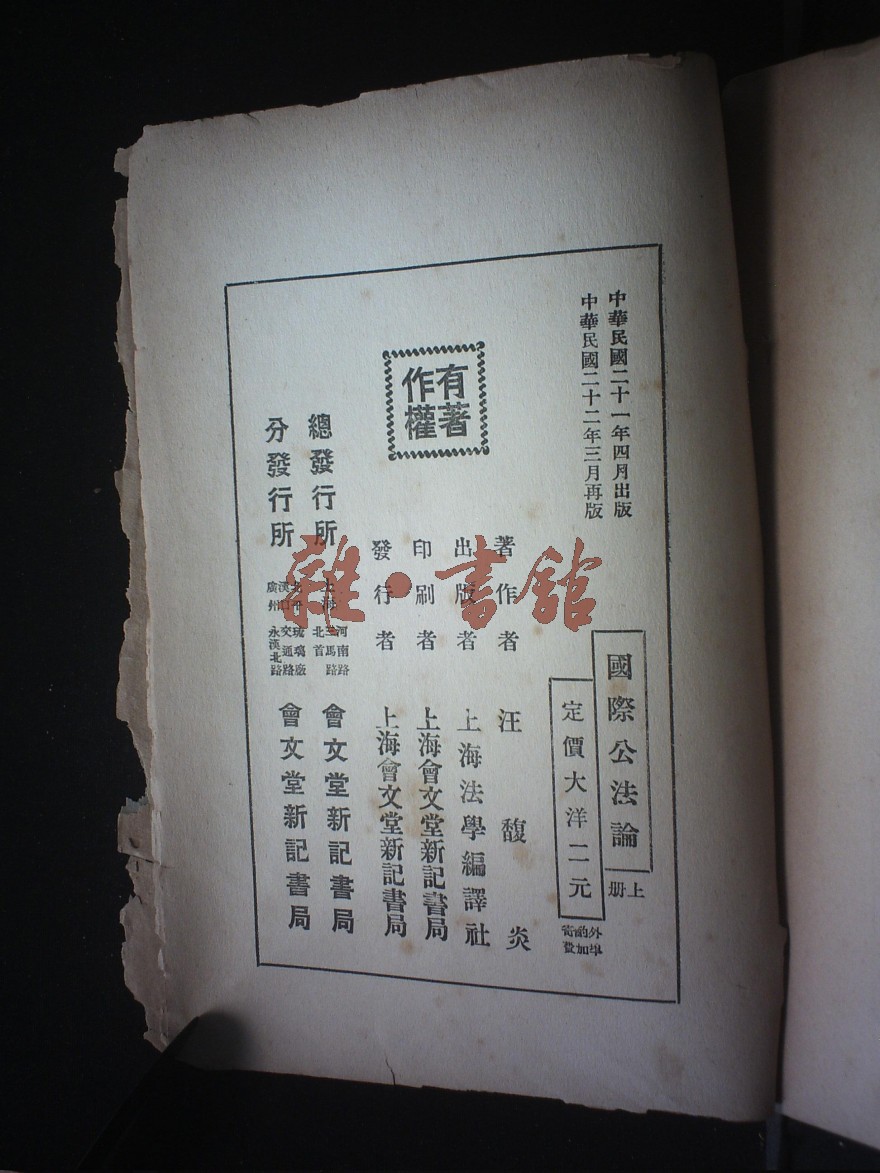 中華民國二十一年四月出版
中華民國二十二年三月再版
國際公法論
上册
定價大洋二元
外埠酌加寄費
著作者 汪馥炎
出版者 上海法學編譯社
印刷者 上海會文堂新記書局
發行者 上海會文堂新記書局
有著作權
總發行所 上海 河南路 北首 會文堂新記書局
分發行所 琉璃廠 漢口 交通路 廣州 永漢北路 會文堂新記書局
雜·書館